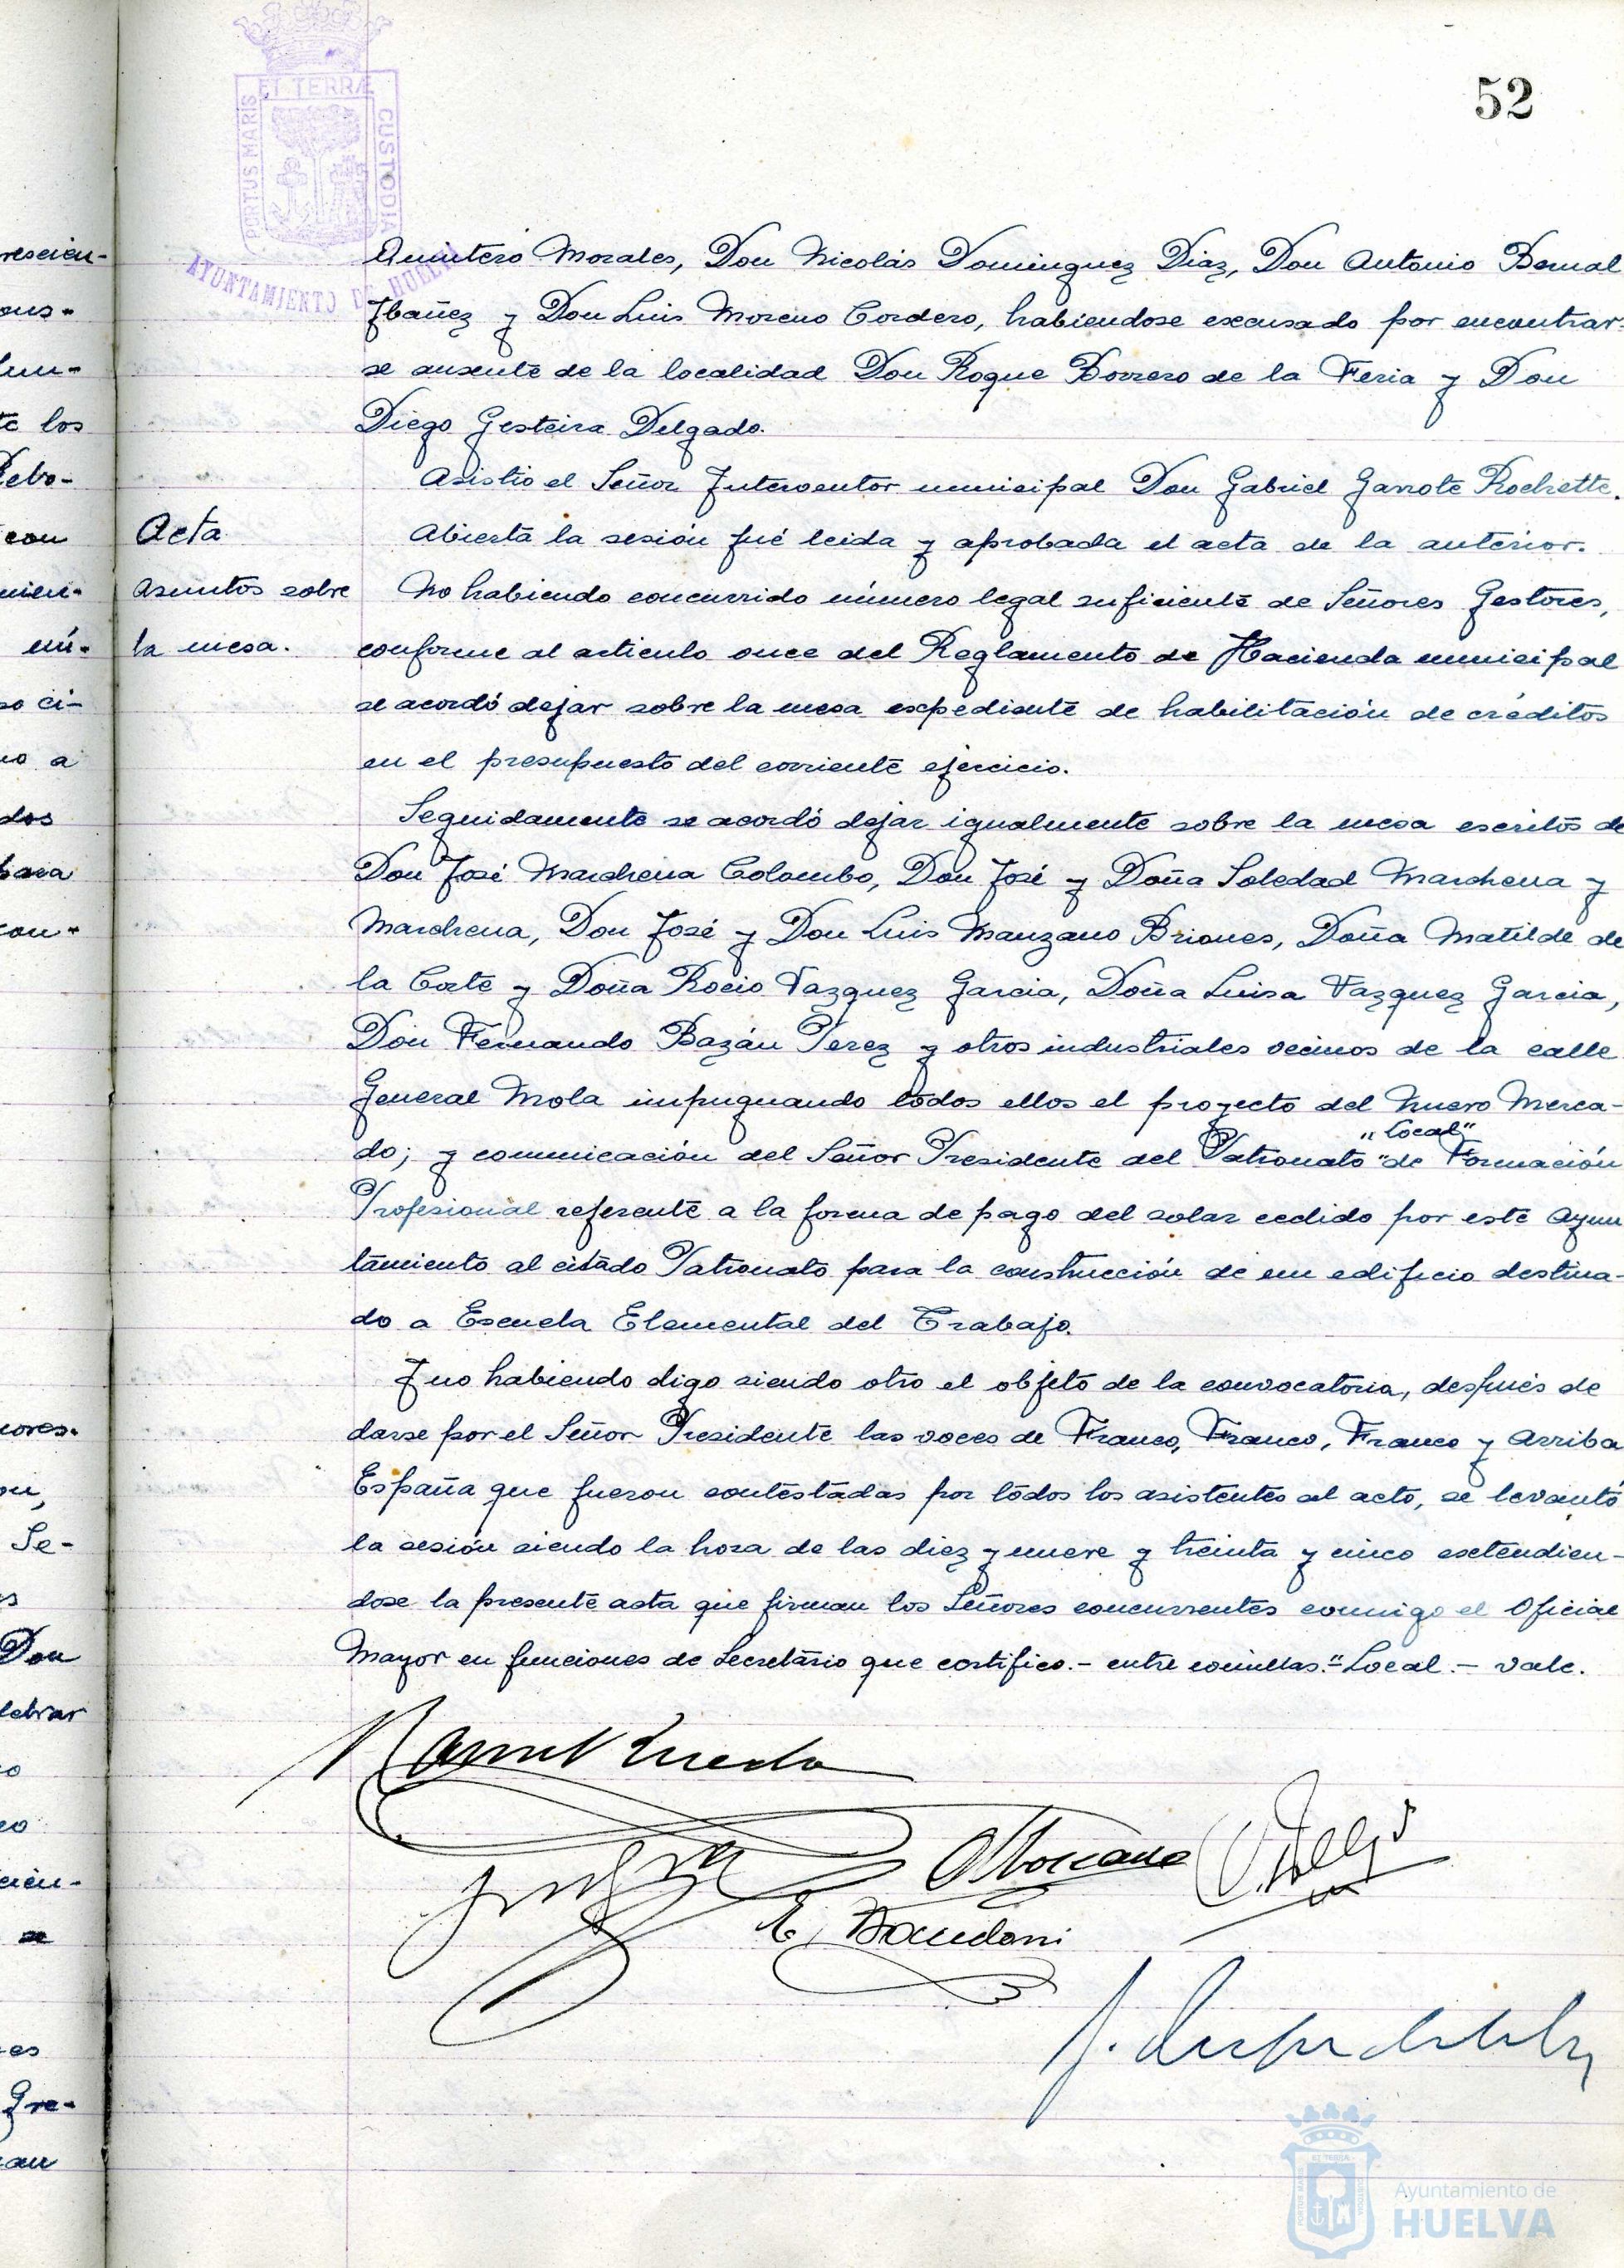 52
PORTUS MARIS ET TERRÆ CUSTODIA
AYUNTAMIENTO DE HUELVA
Quintero Morales, Don Nicolás Dominguez Diaz, Don Antonio Bernal
Ibañez y Don Luis Moreno Cordero, habiendose excusado por encontrar-
se ausente de la localidad Don Roque Borrero de la Feria y Don
Diego Gesteira Delgado.
Asistio el Señor Interventor municipal Don Gabriel Garrote Rochette.
Acta
Abierta la sesión fué leida y aprobada el acta de la anterior.
Asuntos sobre
la mesa.
No habiendo concurrido número legal suficiente de Señores Gestores,
conforme al articulo once del Reglamento de Hacienda municipal
se acordó dejar sobre la mesa expediente de habilitación de créditos
en el presupuesto del corriente ejercicio.
Seguidamente se acordó dejar igualmente sobre la mesa escritos de
Don José Marchena Colombo, Don José y Doña Soledad Marchena y
Marchena, Don José y Don Luis Manzano Briones, Doña Matilde de
la Corte y Doña Rocio Vazquez Garcia, Doña Luisa Vazquez Garcia,
Don Fernando Bazán Perez y otros industriales vecinos de la calle
General Mola impugnando todos ellos el proyecto del Nuevo Merca-
do; y comunicación del Señor Presidente del Patronato "Local" de Formación
Profesional referente a la forma de pago del solar cedido por este Ayun
tamiento al citado Patronato para la construcción de un edificio destina-
do a Escuela Elemental del Trabajo.
Y no habiendo digo siendo otro el objeto de la convocatoria, después de
darse por el Señor Presidente las voces de Franco, Franco, Franco y Arriba
España que fueron contestadas por todos los asistentes al acto, se levantó
la sesión siendo la hora de las diez y nueve y treinta y cinco extendien-
dose la presente acta que firman los Señores concurrentes conmigo el Oficial
Mayor en funciones de Secretario que certifico.- entre comillas."Local.- vale.
Ayuntamiento de
HUELVA